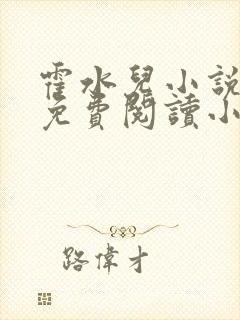 霍水兒小說
免費閱讀小
路偉才